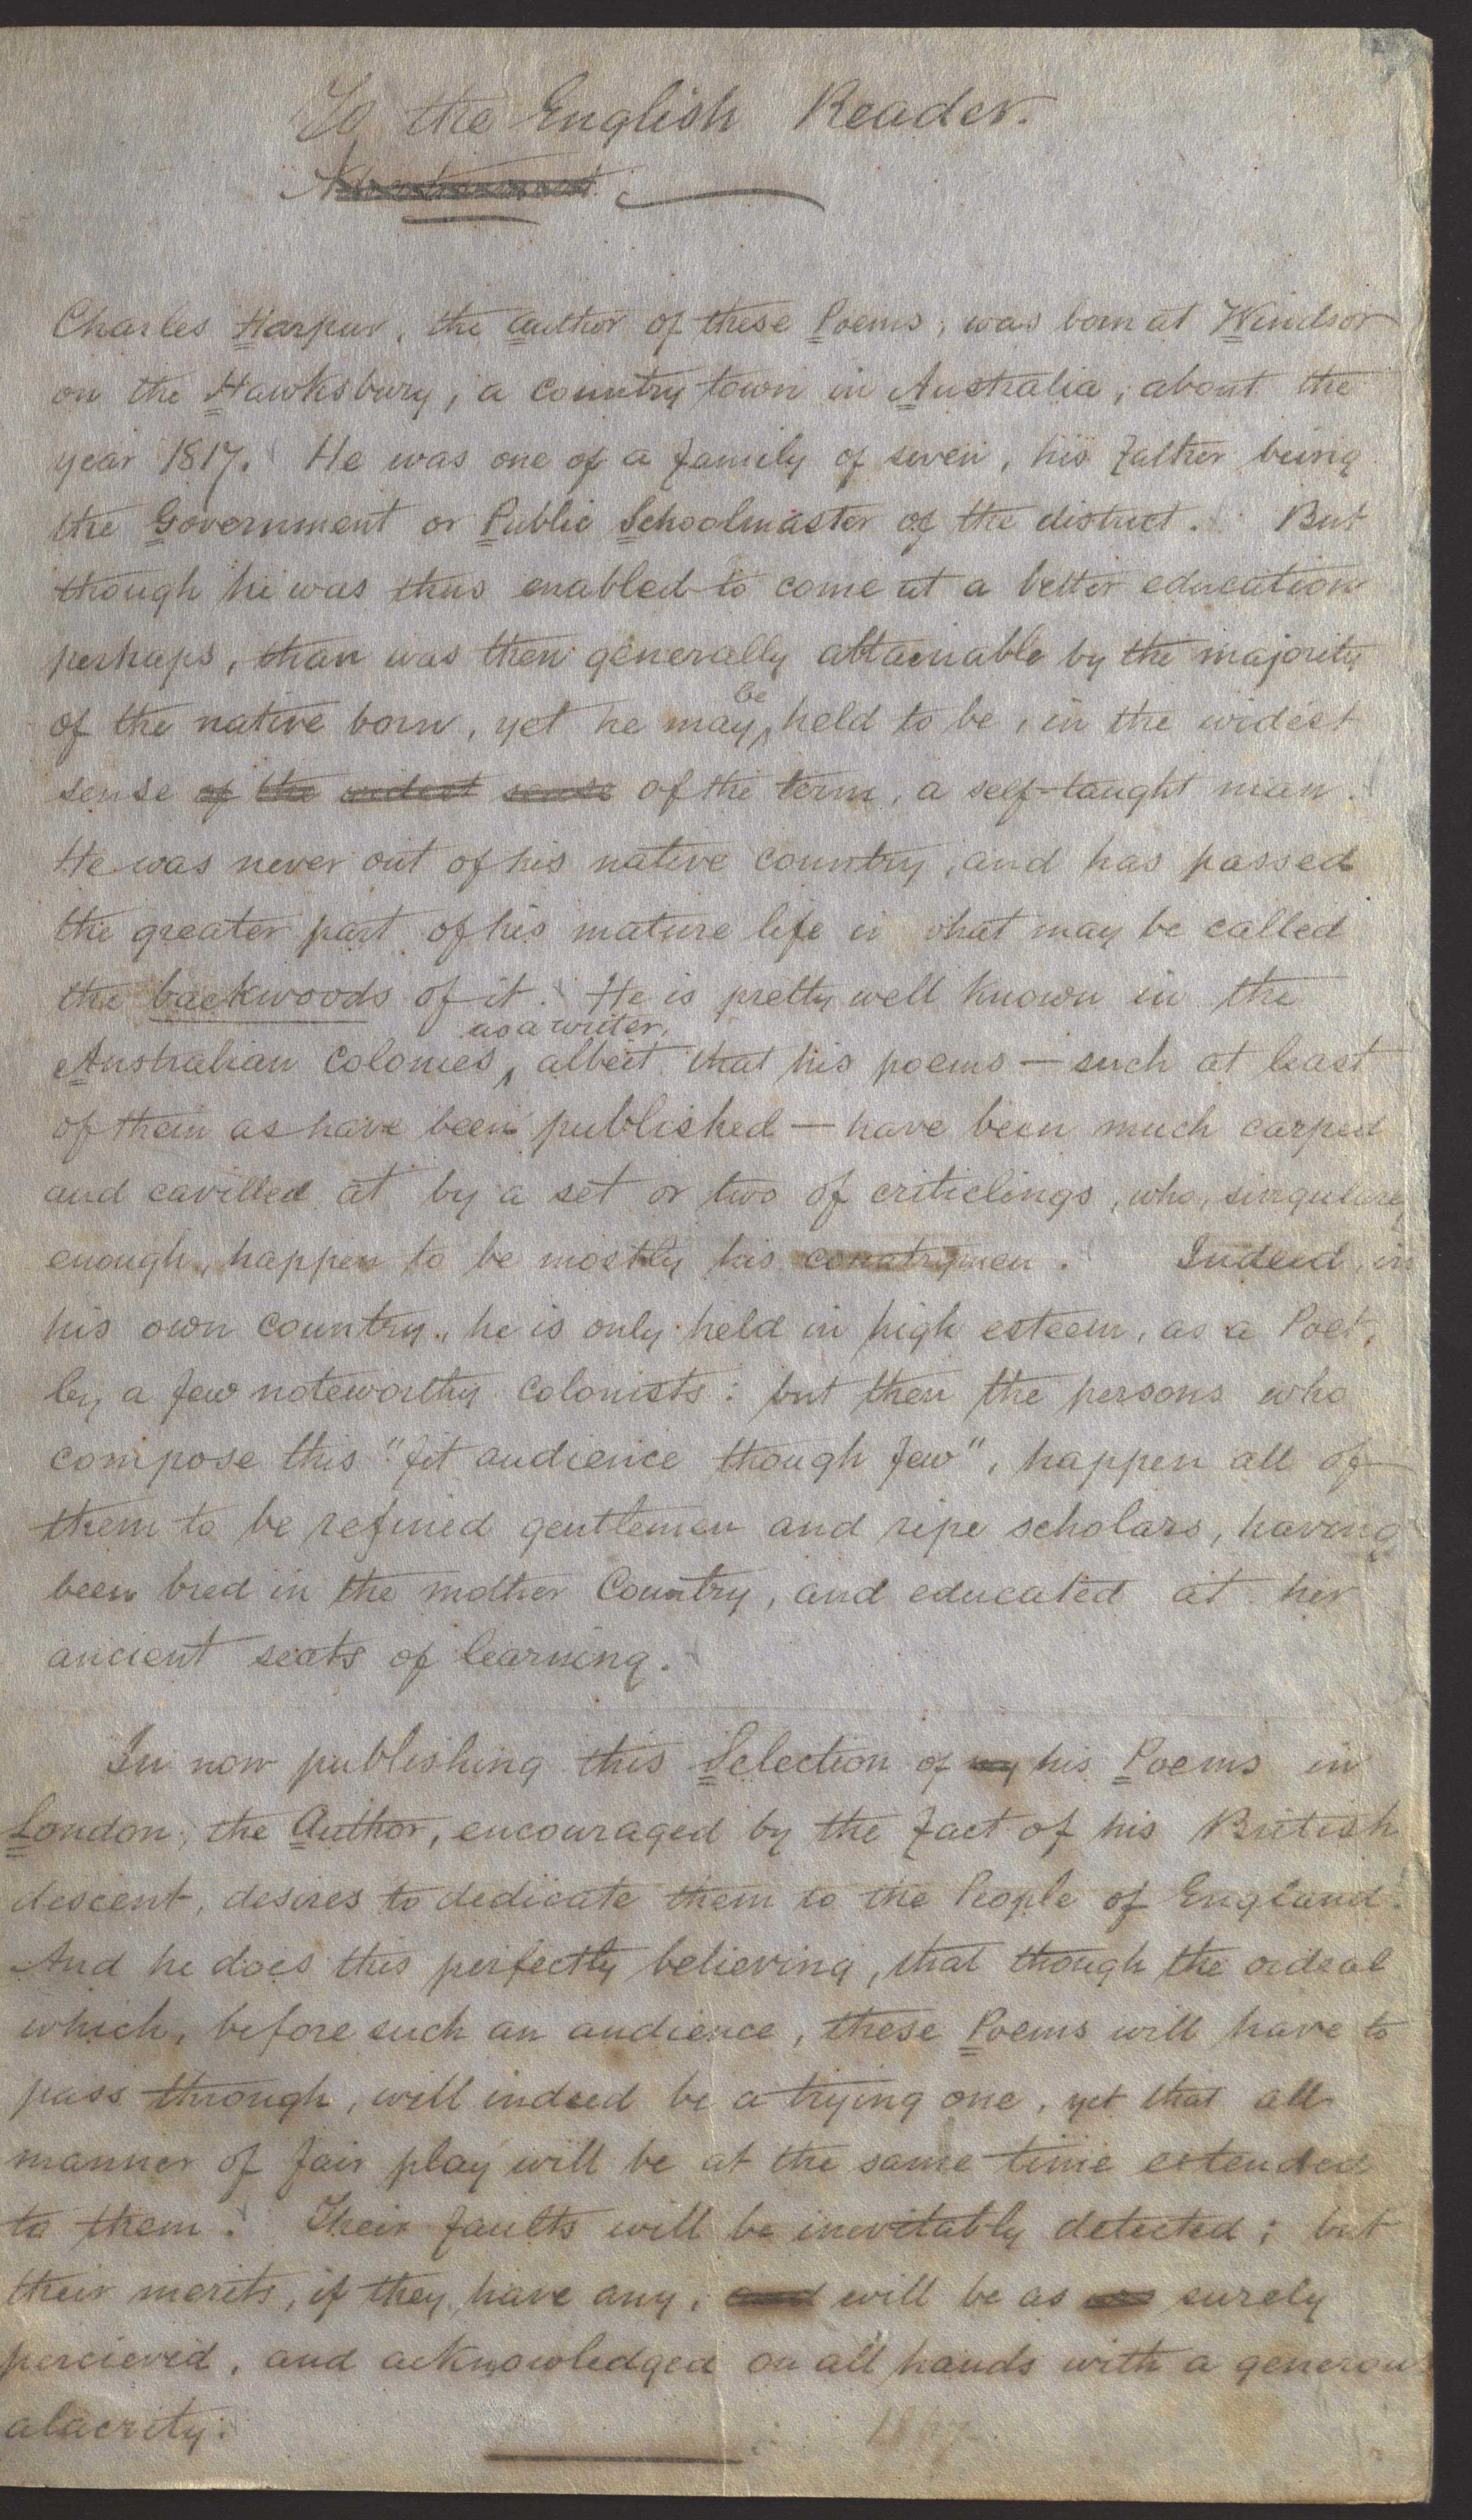 To the English Reader.
Advertisement.
Charles Harpur, the Author of these Poems, was born at Windsor
on the Hawksbury, a Country town in Australia, about the
year 1817. He was one of a family of seven, his father being
the Government or Public Schoolmaster of the district. But
though he was thus enabled to come at a better education
perhaps, than was then generally attainable by the majority
of the native born, yet he may be held to be, in the widest
sense of the widest sense of the term, a self-taught man.
He was never out of his native country, and has passed
the greater part of his mature life in what may be called
the backwoods of it. He is pretty well known in the
Australian Colonies, as a writer, albeit that his poems — such at least
of them as have been published — have been much carped
and cavilled at by a set or two of criticlings, who, singularly
enough, happen to be mostly his countrymen. Indeed, in
his own country, he is only held in high esteem, as a Poet,
by a few noteworthy Colonists: but then the persons who
compose this "fit audience though few", happen all of
them to be refined gentlemen and ripe scholars, having
been bred in the mother Country, and educated at her
ancient seats of learning.
In now publishing this Selection of my his Poems in
London, the Author, encouraged by the fact of his British
descent, desires to dedicate them to the People of England.
And he does this perfectly believing, that though the ordeal
which, before such an audience, these Poems will have to
pass through, will indeed be a trying one, yet that all
manner of fair play will be at the same time extended
to them. Their faults will be inevitably detected; but
their merits, if they have any, and will be as surely
percieved, and acknowledged on all hands with a generous
alacrity.
1867